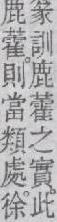 篆訓鹿藿之實此
鹿藿則當類處徐